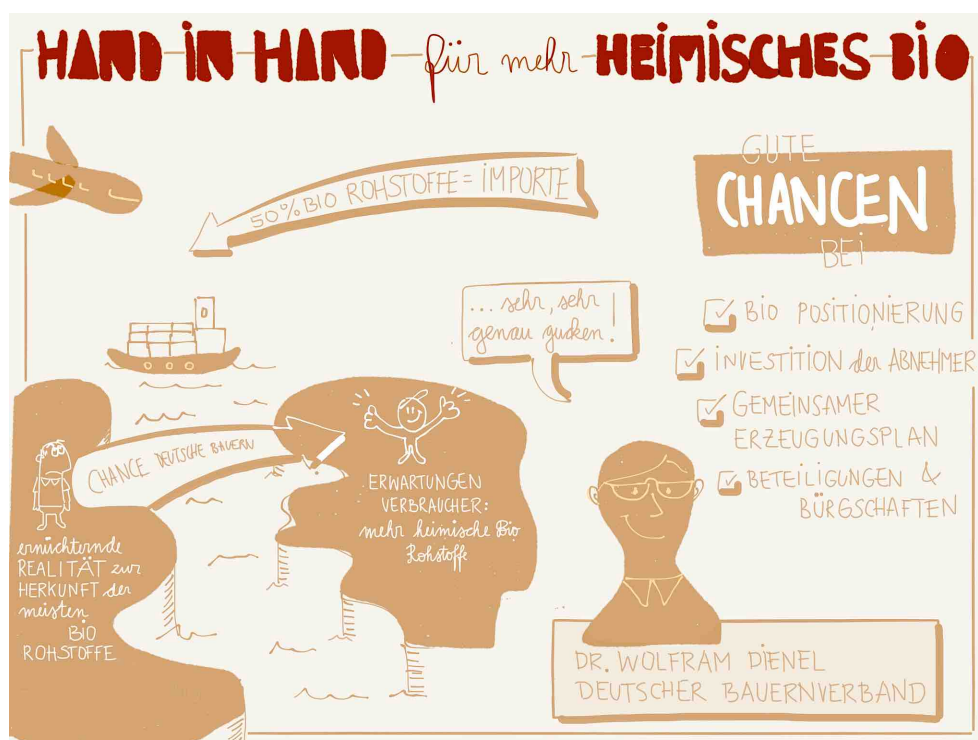 HAND IN HAND für mehr HEIMISCHES BIO
50% BIO ROHSTOFFE = IMPORTE
GUTE
CHANCEN
BEI
BIO POSITIONIERUNG
INVESTITION der ABNEHMER
GEMEINSAMER
ERZEUGUNGSPLAN
BETEILIGUNGEN &
BÜRGSCHAFTEN
... sehr, sehr
genau gucken!
CHANCE DEUTSCHE BAUERN
ERWARTUNGEN
VERBRAUCHER:
mehr heimische Bio
Rohstoffe
ernüchternde
REALITÄT zur
HERKUNFT der
meisten
BIO
ROHSTOFFE
DR. WOLFRAM DIENEL
DEUTSCHER BAUERNVERBAND